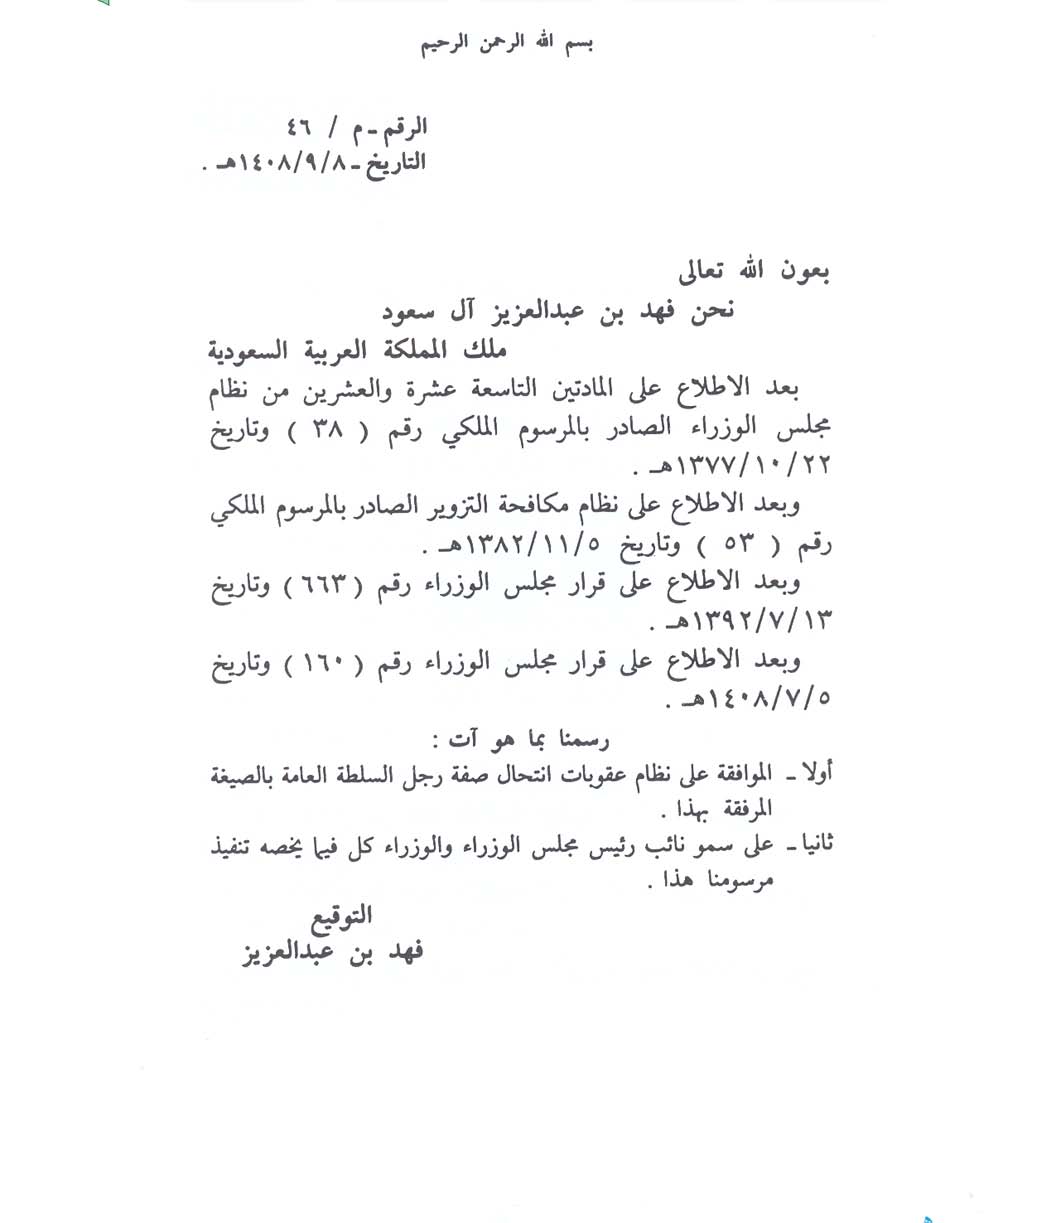 بسم الله الرحمن الرحيم
الرقم ـ م / ٤٦
التاريخ ـ ١٤٠٨/٩/٨هـ .
بعون الله تعالى
نحن فهد بن عبدالعزيز آل سعود
ملك المملكة العربية السعودية
بعد الاطلاع على المادتين التاسعة عشرة والعشرين من نظام
مجلس الوزراء الصادر بالمرسوم الملكي رقم ( ٣٨ ) وتاريخ
١٣٧٧/١٠/٢٢هـ .
وبعد الاطلاع على نظام مكافحة التزوير الصادر بالمرسوم الملكي
رقم ( ٥٣ ) وتاريخ ١٣٨٢/١١/٥هـ .
وبعد الاطلاع على قرار مجلس الوزراء رقم (٦٦٣ ) وتاريخ
١٣٩٢/٧/١٣هـ .
وبعد الاطلاع على قرار مجلس الوزراء رقم ( ١٦٠ ) وتاريخ
١٤٠٨/٧/٥هـ .
رسمنا بما هو آت :
أولا ـ الموافقة على نظام عقوبات انتحال صفة رجل السلطة العامة بالصيغة
المرفقة بهذا .
ثانيا ـ على سمو نائب رئيس مجلس الوزراء والوزراء كل فيما يخصه تنفيذ
مرسومنا هذا .
التوقيع
فهد بن عبدالعزيز